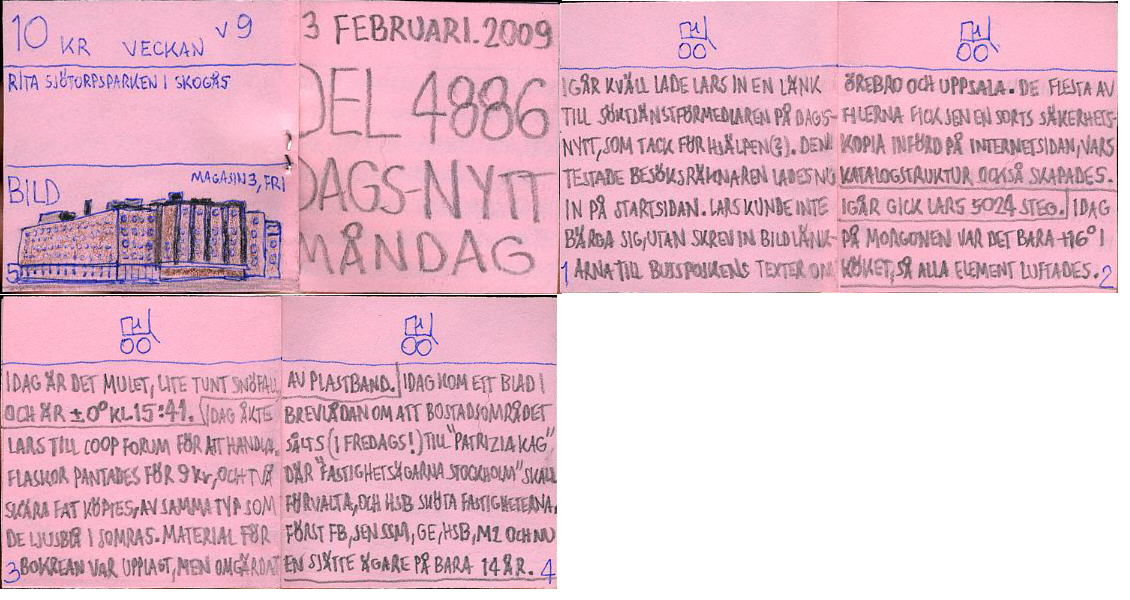 10 KR VECKAN V9
RITA SJÖTORPSPARKEN I SKOGÅS
BILD
MAGASIN 3, FRI
5
3 FEBRUARI. 2009
DEL 4886
DAGS-NYTT
MÅNDAG
IGÅR KVÄLL LADE LARS IN EN LÄNK
TILL SÖKTJÄNSTFÖRMEDLAREN PÅ DAGS-
NYTT, SOM TACK FÖR HJÄLPEN(?). DEN
TESTADE BESÖKSRÄKNAREN LADES NU
IN PÅ STARTSIDAN. LARS KUNDE INTE
BÄRGA SIG, UTAN SKREV IN BILDLÄNK-
1 ARNA TILL BUSSPOJKENS TEXTER OM
ÖREBRO OCH UPPSALA. DE FLESTA AV
FILERNA FICK SEN EN SORTS SÄKERHETS-
KOPIA INFÖRD PÅ INTERNETSIDAN, VARS
KATALOGSTRUKTUR OCKSÅ SKAPADES.
IGÅR GICK LARS 5024 STEG. IDAG
PÅ MORGONEN VAR DET BARA +16° I
KÖKET, SÅ ALLA ELEMENT LUFTADES. 2
IDAG ÄR DET MULET, LITE TUNT SNÖFALL
OCH ÄR ±0° KL.15:41. IDAG ÅKTE
LARS TILL COOP FORUM FÖR ATT HANDLA.
FLASKOR PANTADES FÖR 9 Kr, OCH TVÅ
SKÄRA FAT KÖPTES, AV SAMMA TYP SOM
DE LJUSBLÅ I SOMRAS. MATERIAL FÖR
3 BOKREAN VAR UPPLAGT, MEN OMGÄRDAT
AV PLASTBAND. IDAG KOM ETT BLAD I
BREVLÅDAN OM ATT BOSTADSOMRÅDET
SÅLTS (I FREDAGS!) TILL "PATRIZIA KAG",
DÄR "FASTIGHETSÄGARNA STOCKHOLM" SKALL
FÖRVALTA, OCH HSB SKÖTA FASTIGHETERNA.
FÖRST FB, SEN SSM, GE, HSB, M2 OCH NU
EN SJÄTTE ÄGARE PÅ BARA 14 ÅR. 4